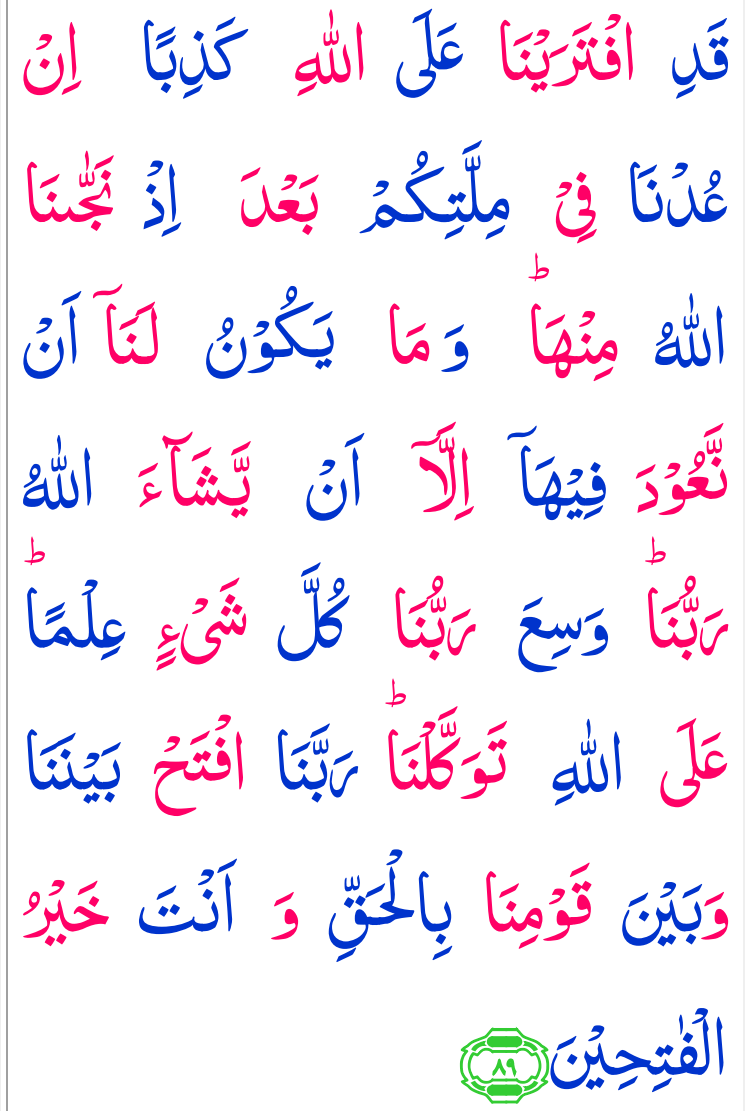 قَدِ افْتَرَيْنَا عَلَى اللّٰهِ كَذِبًا اِنْ
عُدْنَا فِيْ مِلَّتِكُمْ بَعْدَ اِذْ نَجّٰىنَا
اللّٰهُ مِنْهَا ؕ وَ مَا يَكُوْنُ لَنَاۤ اَنْ
نَّعُوْدَ فِيْهَاۤ اِلَّاۤ اَنْ يَّشَآءَ اللّٰهُ
رَبُّنَا ؕ وَسِعَ رَبُّنَا كُلَّ شَيْءٍ عِلْمًا ؕ
عَلَى اللّٰهِ تَوَكَّلْنَا ؕ رَبَّنَا افْتَحْ بَيْنَنَا
وَبَيْنَ قَوْمِنَا بِالْحَقِّ وَ اَنْتَ خَيْرُ
الْفٰتِحِيْنَ ۸۹